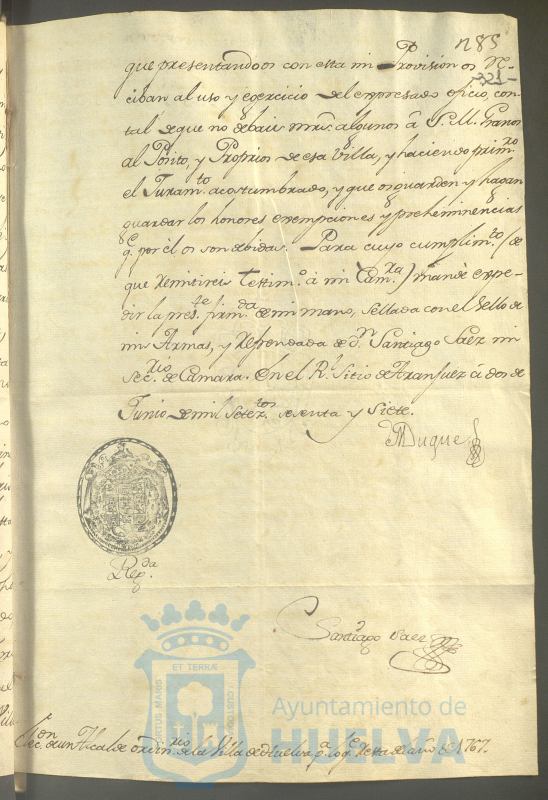 285
321
que presentandoos con esta mi Provision os Re-
ciban al uso y egercicio del expresado oficio, con
tal de que no debais mrs. algunos á S. M. Granos
al Posito, y Propios de esa Villa, y haciendo prim.ro
el Juram.to acostumbrado, y que os guarden y hagan
guardar los honores exempciones y preheminencias
q.e por él os son debidas. Para cuyo cumplim.to / de
que Remitireis testim.o á mi Cam.ra / mandé expe-
dir la pres.te firm.da de mi mano, sellada con el Sello de
mis Armas, y Refrendada de d.n Santiago Saez mi
Sec.rio de Camara. En el R.l Sitio de Aranjuez á dos de
Junio de mil Setez.tos sesenta y Siete.
El Duque
Reg.da
Santiago Saez
Elec.on de un Alcalde ordin.rio de la Villa de Huelva p.a lo q.e Resta de año de 1767.
ET TERRÆ
PORTUS MARIS
CUSTODIA
Ayuntamiento de
HUELVA